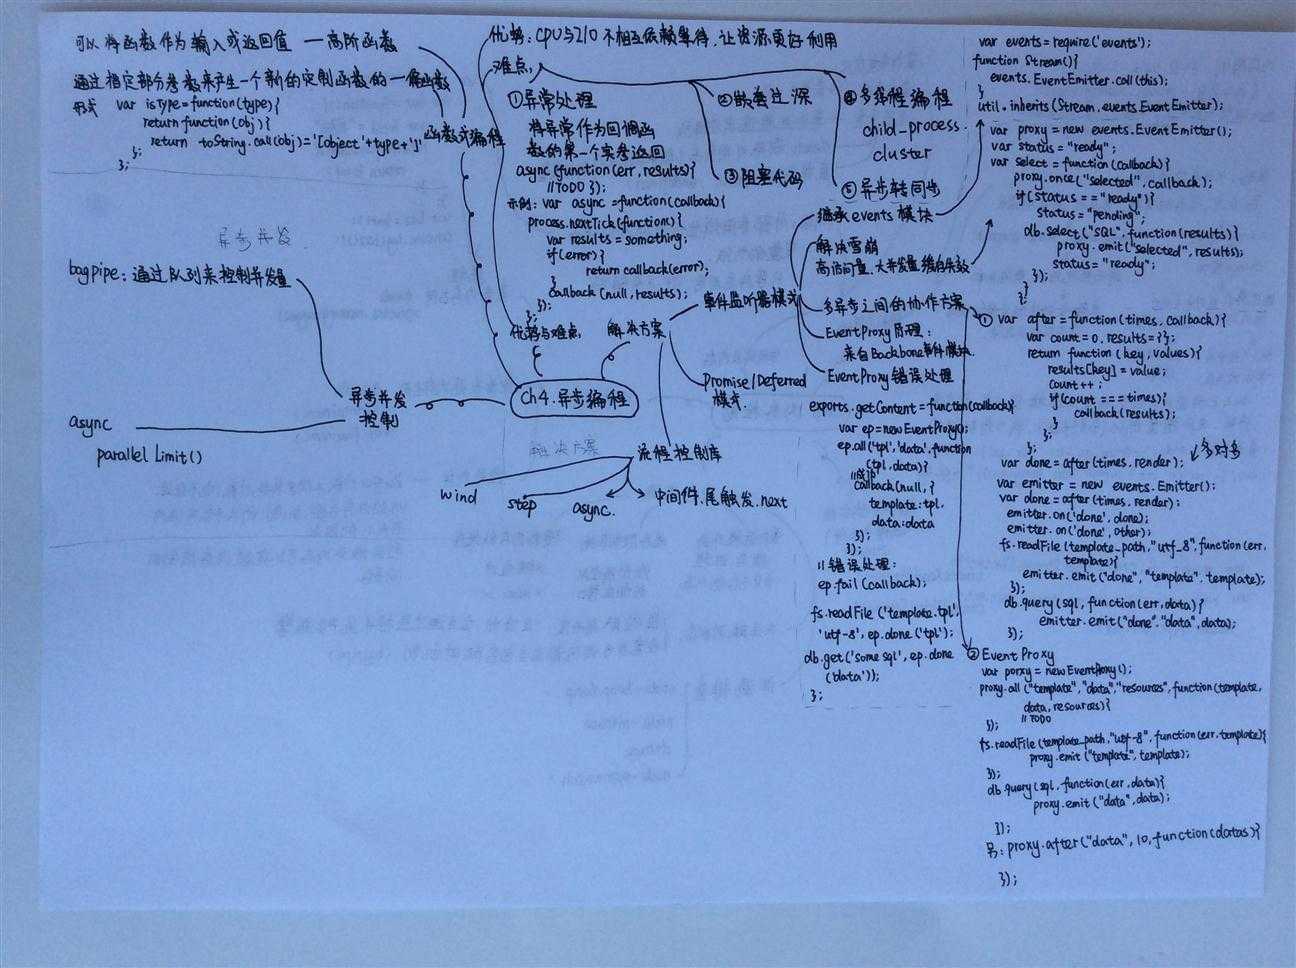 可以将函数作为输入或返回值 — 高阶函数
通过指定部分参数来产生一个新的定制函数的 — 偏函数
形式 var isType=function(type){
return function(obj){
return toString.call(obj)='[object'+type+']'
};
};
函数式编程
异步并发
bagpipe：通过队列来控制并发量
异步并发
控制
async
parallel Limit()
优势：CPU与I/O 不相互依赖等待，让资源更好利用
难点：
①异常处理
将异常作为回调函
数的第一个实参返回
async(function(err, results){
//TODO });
示例：var async =function(callback){
process.nextTick(function(){
var results=something;
if(error){
return callback(error);
}
callback(null,results);
});
};
②嵌套过深
③阻塞代码
④多线程编程
child_process.
cluster
⑤异步转同步
优势与难点
解决方案
Ch4.异步编程
事件监听器模式
Promise/Deferred
模式
解决方案
流程控制库
wind
step
async.
中间件.尾触发.next
继承events 模块
解决雪崩
高访问量，大并发量，缓存失效
多异步之间的协作方案
EventProxy 原理：
来自Backbone事件模块.
EventProxy 错误处理
exports.getContent=function(callback){
var ep=new EventProxy();
ep.all('tpl','data',function
(tpl,data){
//成功
callback(null,{
template:tpl,
data:data
});
});
//错误处理：
ep.fail(callback);
fs.readFile ('template.tpl',
'utf-8', ep.done ('tpl'));
db.get('some sql', ep.done
('data'));
};
var events=require('events');
function Stream(){
events.EventEmitter.call(this);
}
util.inherits(Stream.events.EventEmitter);
var proxy=new events.EventEmitter();
var status="ready";
var select=function(callback){
proxy.once("selected",callback);
if(status=="ready"){
status="pending";
db.select("SQL",function(results){
proxy.emit("selected",results);
status="ready";
});
}
};
① var after=function(times,callback){
var count=0,results={};
return function(key,values){
results[key]=value;
count++;
if(count===times){
callback(results);
}
};
};
var done=after(times,render); 多对多
var emitter=new events.Emitter();
var done=after(times,render);
emitter.on('done',done);
emitter.on('done',other);
fs.readFile(template_path,"utf_8",function(err,
template){
emitter.emit("done","template",template);
});
db.query(sql,function(err,data){
emitter.emit("done"."data",data);
});
② EventProxy
var porxy=new EventProxy();
proxy.all("template","data","resources",function(template,
data,resources){
}); //TODO
fs.readFile(template_path,"utf-8",function(err,template){
proxy.emit("template",template);
});
db.query(sql,function(err,data){
proxy.emit("data",data);
});
另：proxy.after("data",10,function(datas){
});